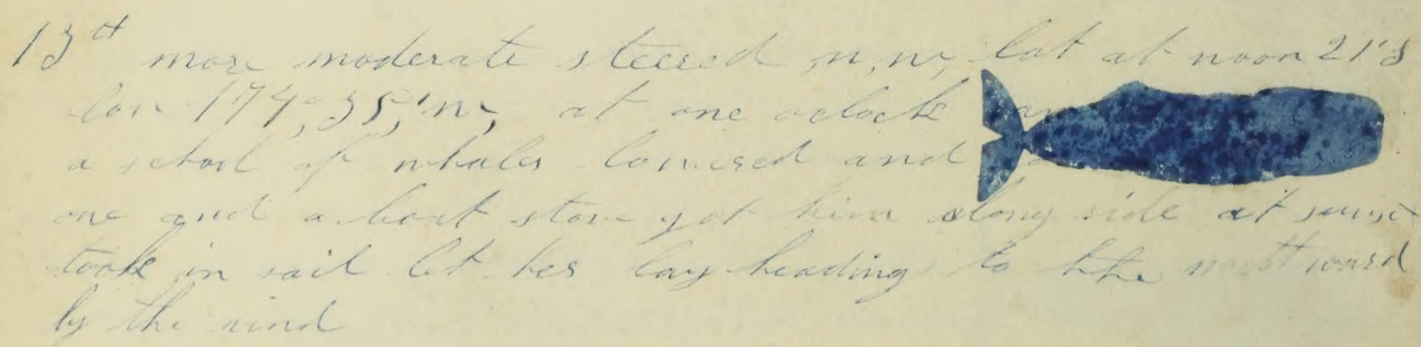 13th more moderate steered n,n,w, lat at noon 21's
lon 174,35,'w, at one oclock
a school of whales lowered and
one and a boat stove got him along side at sunset
took in sail let her lay heading to the northward
by the wind